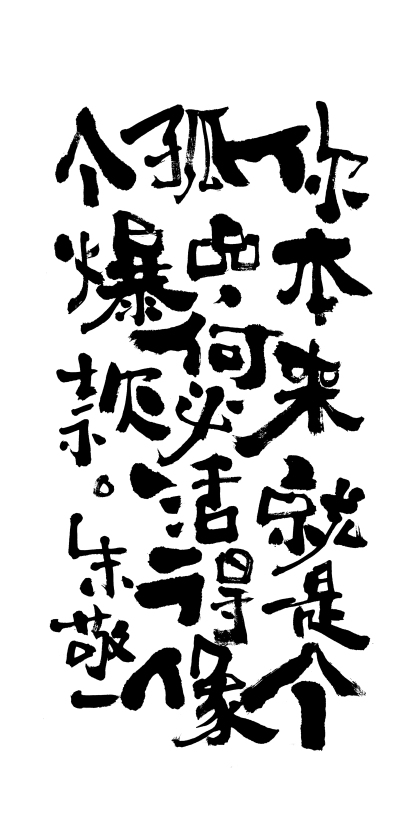 你本来就是个
孤品，何必活得像
个爆款。朱敬一